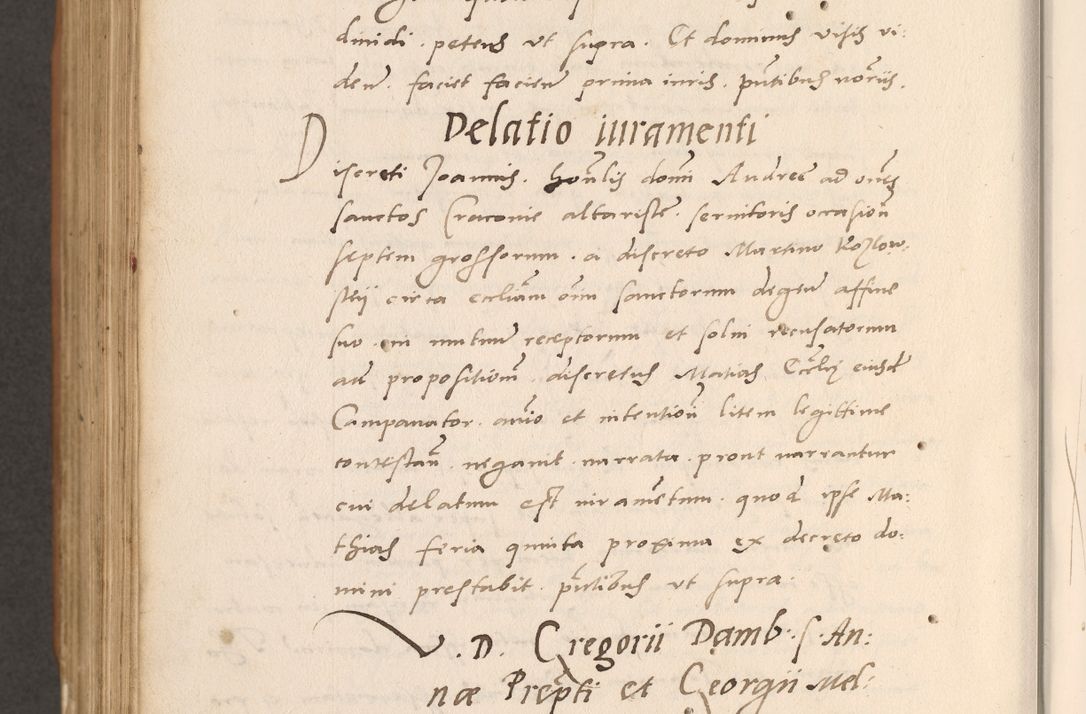 diuidi . petens ut supra . Et dominus visis vi:
den̄ . faciet facien̄ prima iuris . pn̄tibus no̅riis .
Delatio iuramenti
Discreti Joannis . hon̄lis domi Andree ad om̄es
sanctos Cracouie altariste . seruitoris occasion̄
septem grossorum . a discreto Martino Kozlow:
skij circa eccliam om̄ sanctorum degen̄ affine
suo . in mutuū receptorum et solui recusatorum
ad propositionē . discretus Matias Ecclie eiusdē
Campanator . animo et intentioni litem legittime
contestan̄ . negauit . narrata . prout narrantur
cui delatum est iuramētum . quod ipse Ma:
thias feria quinta proxima ex decreto do:
mini prestabit . pn̄tibus ut supra .
V . D . Gregorii Damb : S . An:
næ Prepti et Georgii Mel: